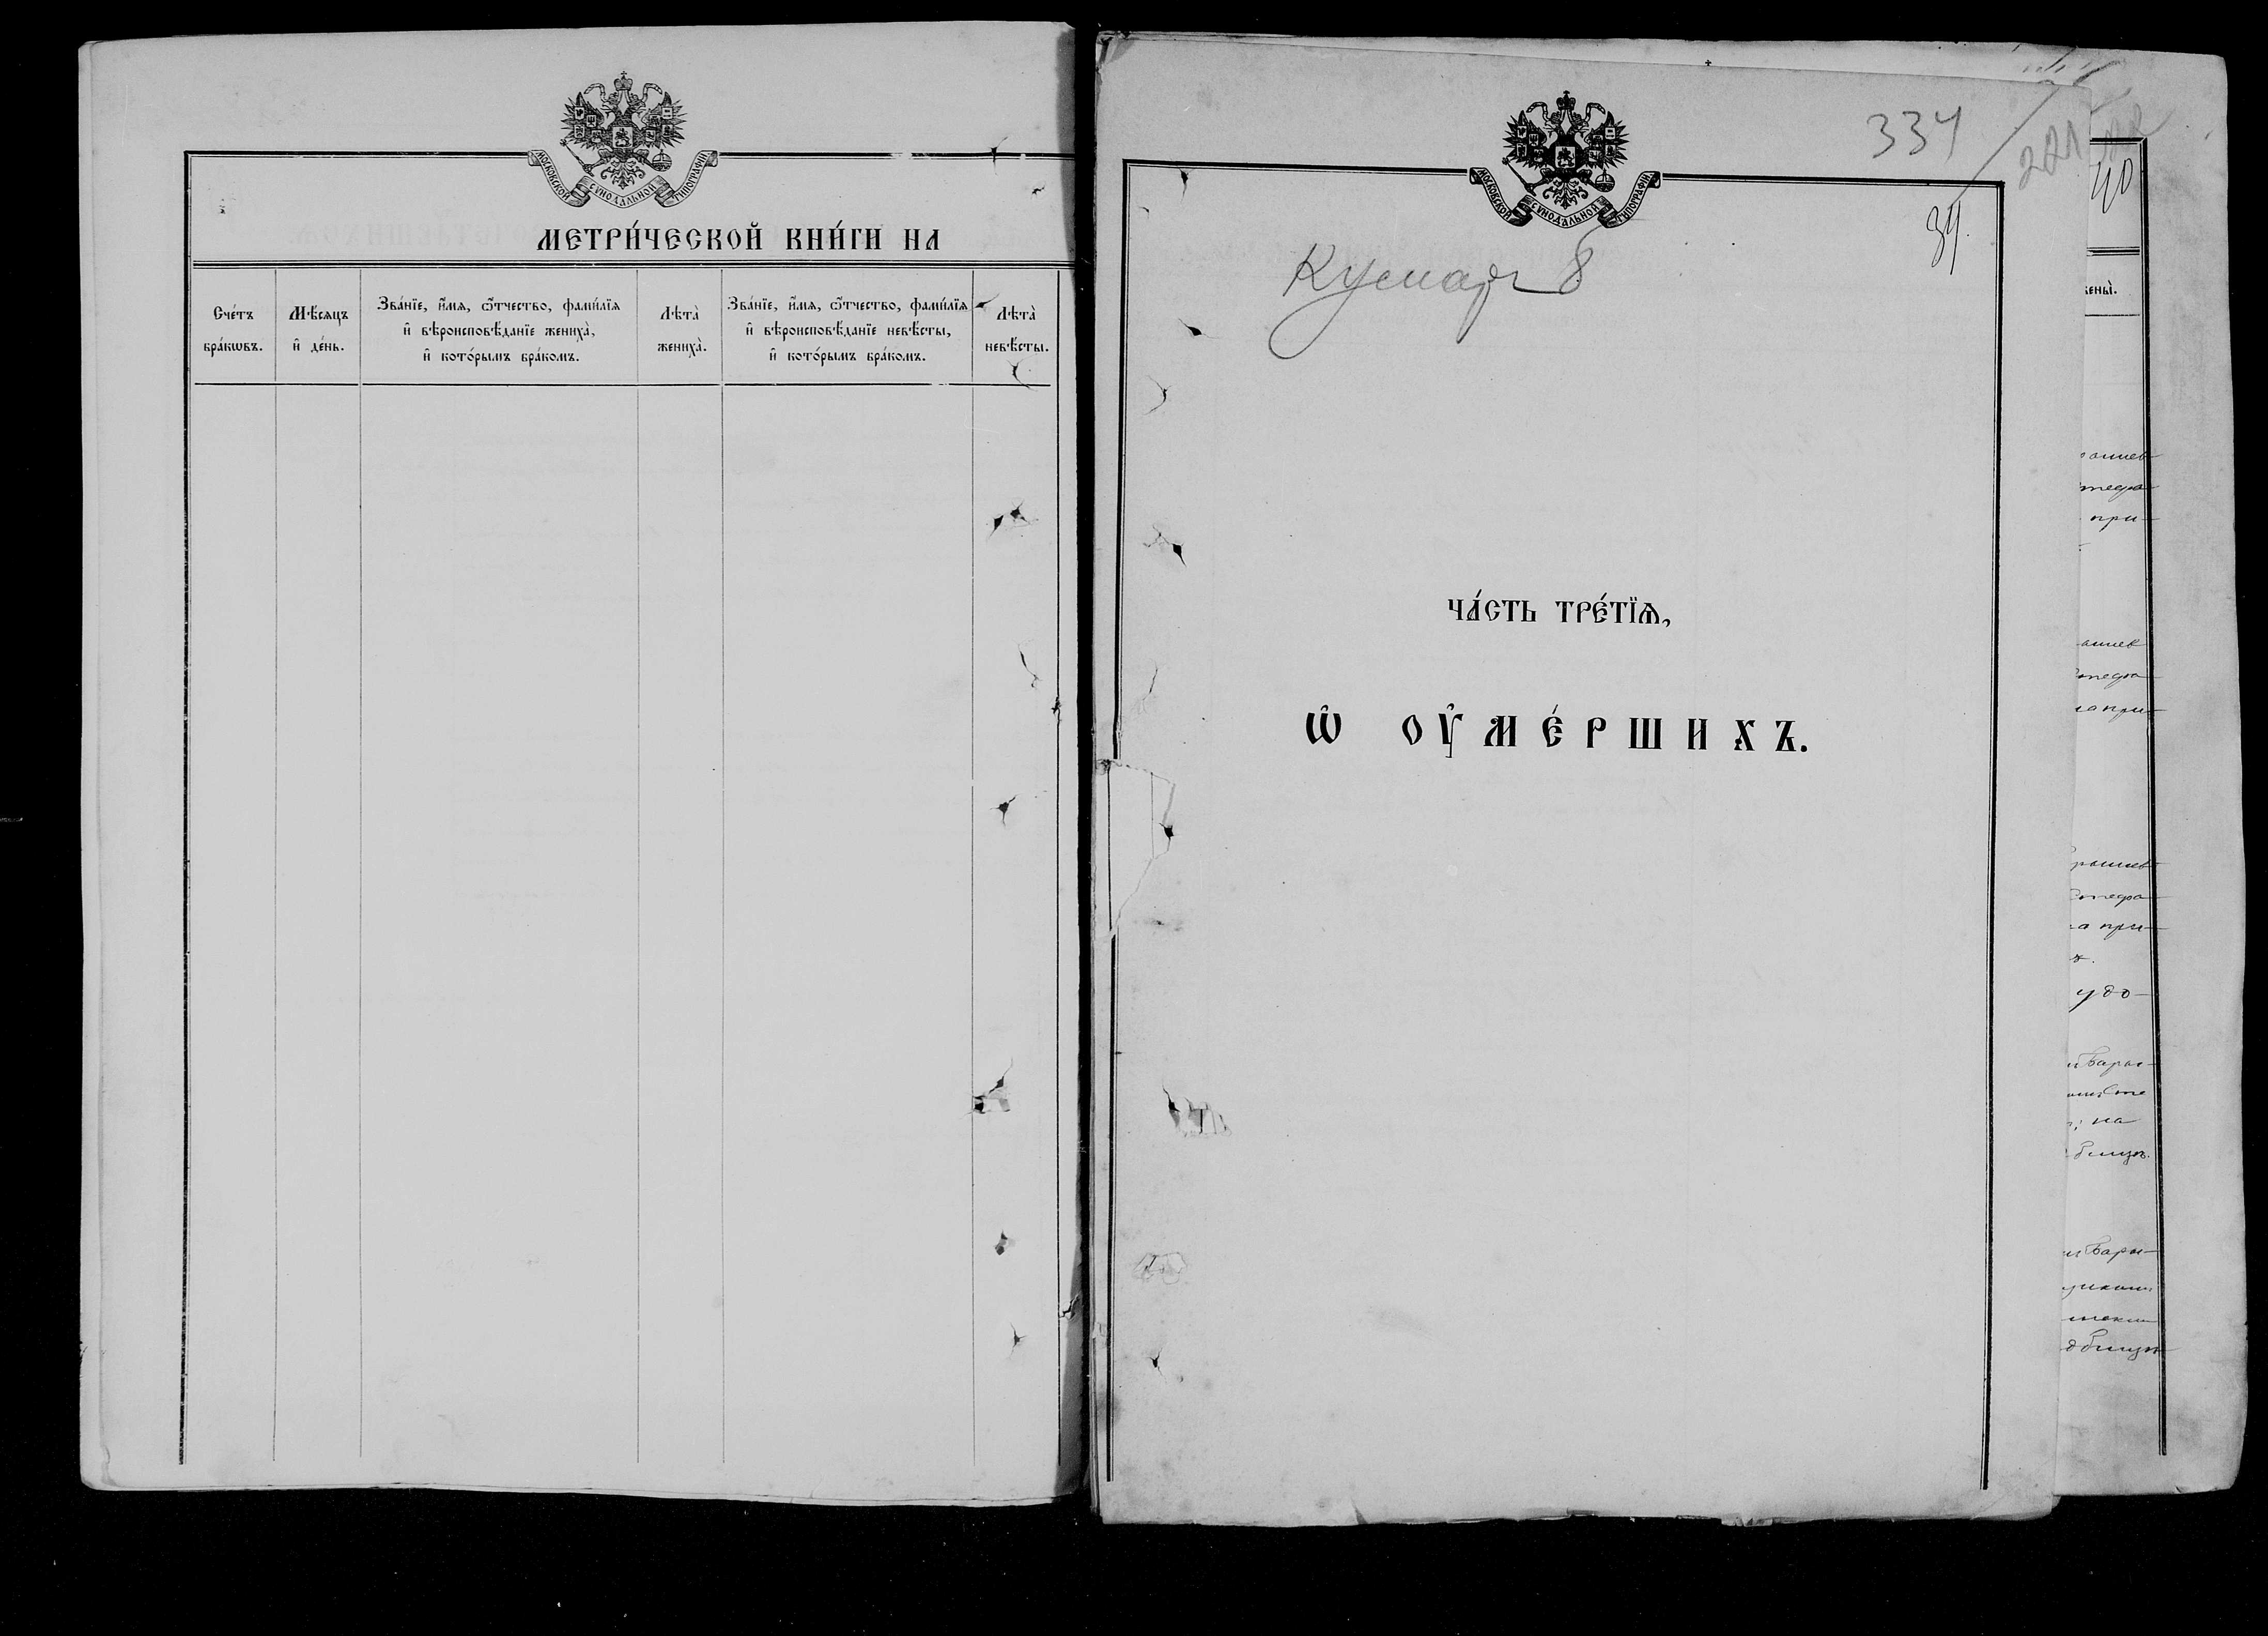 МОСКОВСКОЙ СѴНОДАЛЬНОЙ ТИПОГРАФІИ
МЕТРИ́ЧЕСКОЙ КНИ́ГИ НА
Сче́тъ
бра́кѡвъ.
Мѣ́сяцъ
и҆ де́нь.
Зва́нїе, и҆́мя, ѻ҆́тчество, фами́лїя
и҆ вѣроисповѣ́данїе жениха̀,
и҆ кото́рымъ бра́комъ.
Лѣта̀
жениха̀.
Зва́нїе, и҆́мя, ѻ҆́тчество, фами́лїя
и҆ вѣроисповѣ́данїе невѣ́сты,
и҆ кото́рымъ бра́комъ.
Лѣта̀
невѣ́сты.
МОСКОВСКОЙ СѴНОДАЛЬНОЙ ТИПОГРАФІИ
334
221
39
ЧА́СТЬ ТРЕ́ТЇѦ,
Ѡ҆ ОУ҆МЕ́РШИХЪ.
40
при-
удо-
на